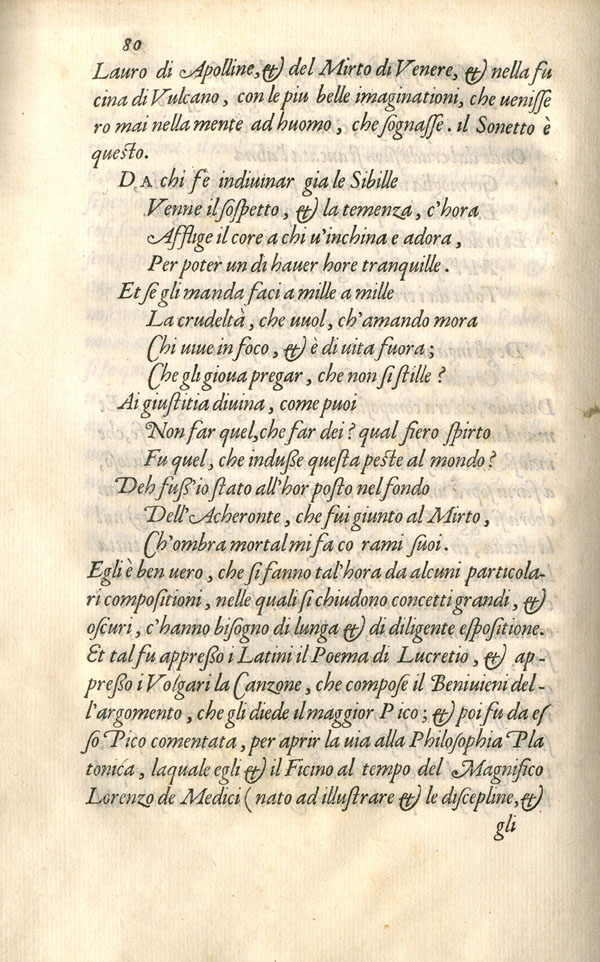 80
Lauro di Apolline, & del Mirto di Venere, & nella fu
cina di Vulcano, con le piu belle imaginationi, che uenisse
ro mai nella mente ad huomo, che sognasse. il Sonetto è
questo.
DA chi fè indiuinar gia le Sibille
Venne il sospetto, & la temenza, c'hora
Afflige il core a chi u'inchina e adora,
Per poter un di hauer hore tranquille.
Et se gli manda faci a mille a mille
La crudeltà, che uuol, ch'amando mora
Chi uiue in foco, & è di uita fuora;
Che gli gioua pregar, che non si stille?
Ai giustitia diuina, come puoi
Non far quel, che far dei? qual fiero spirto
Fu quel, che indusse questa peste al mondo?
Deh fuss'io stato all'hor posto nel fondo
Dell'Acheronte, che fui giunto al Mirto,
Ch'ombra mortal mi fa co rami suoi.
Egli è ben uero, che si fanno tal'hora da alcuni particola-
ri compositioni, nelle quali si chiudono concetti grandi, &
oscuri, c'hanno bisogno di lunga & di diligente espositione.
Et tal fu appresso i Latini il Poema di Lucretio, & ap-
presso i Volgari la Canzone, che compose il Beniuieni del-
l'argomento, che gli diede il maggior Pico; & poi fu da es
so Pico comentata, per aprir la uia alla Philosophia Pla
tonica, laquale egli & il Ficino al tempo del Magnifico
Lorenzo de Medici (nato ad illustrare & le discepline, &
gli